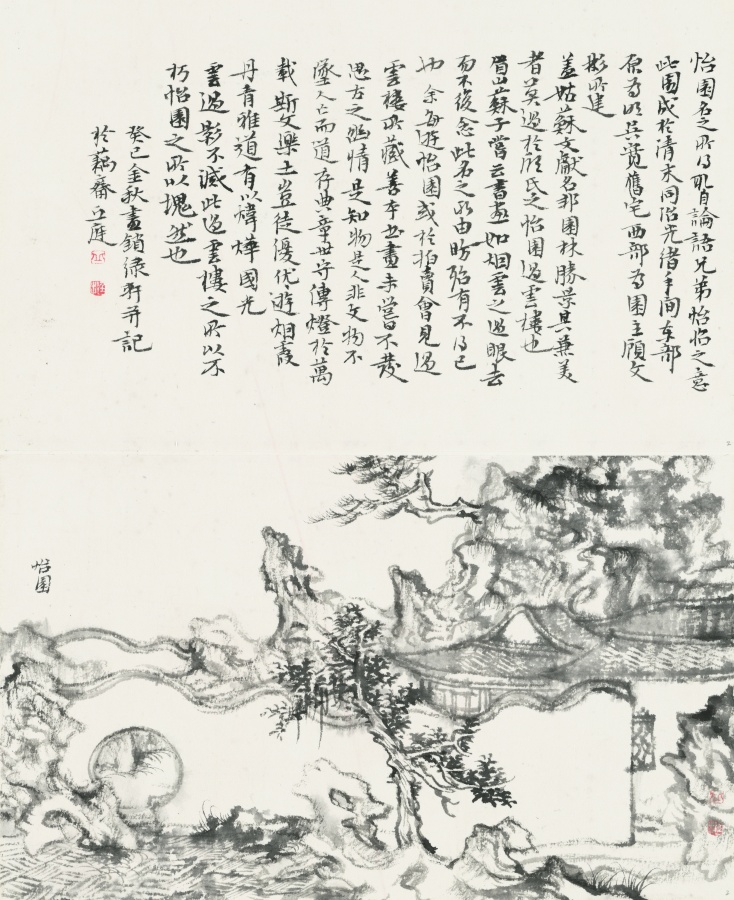 怡園名之所得取自論語兄弟怡怡之意
此園成於清末同治光緒年间东部
原为明吳寬舊宅西部为園主顧文
彬所建
蓋姑蘇文獻名邦園林勝景其兼美
者莫過於顾氏之怡園過雲樓也
眉山蘇子嘗云書畫如烟雲之過眼去
而不復念此名之所由昉殆有不得已
也余每遊怡園或於拍賣會見過
雲樓所藏善本书畫未嘗不發
思古之幽情是知物是人非文物不
墜人亡而道存典章世守傳燈於萬
載斯文樂土豈徒優优游烟霞
丹青雅道有以煒燁國光
雲過影不滅此過雲樓之所以不
朽怡園之所以塊然也
癸巳金秋畫鎖绿軒并記
於藕齋
怡園